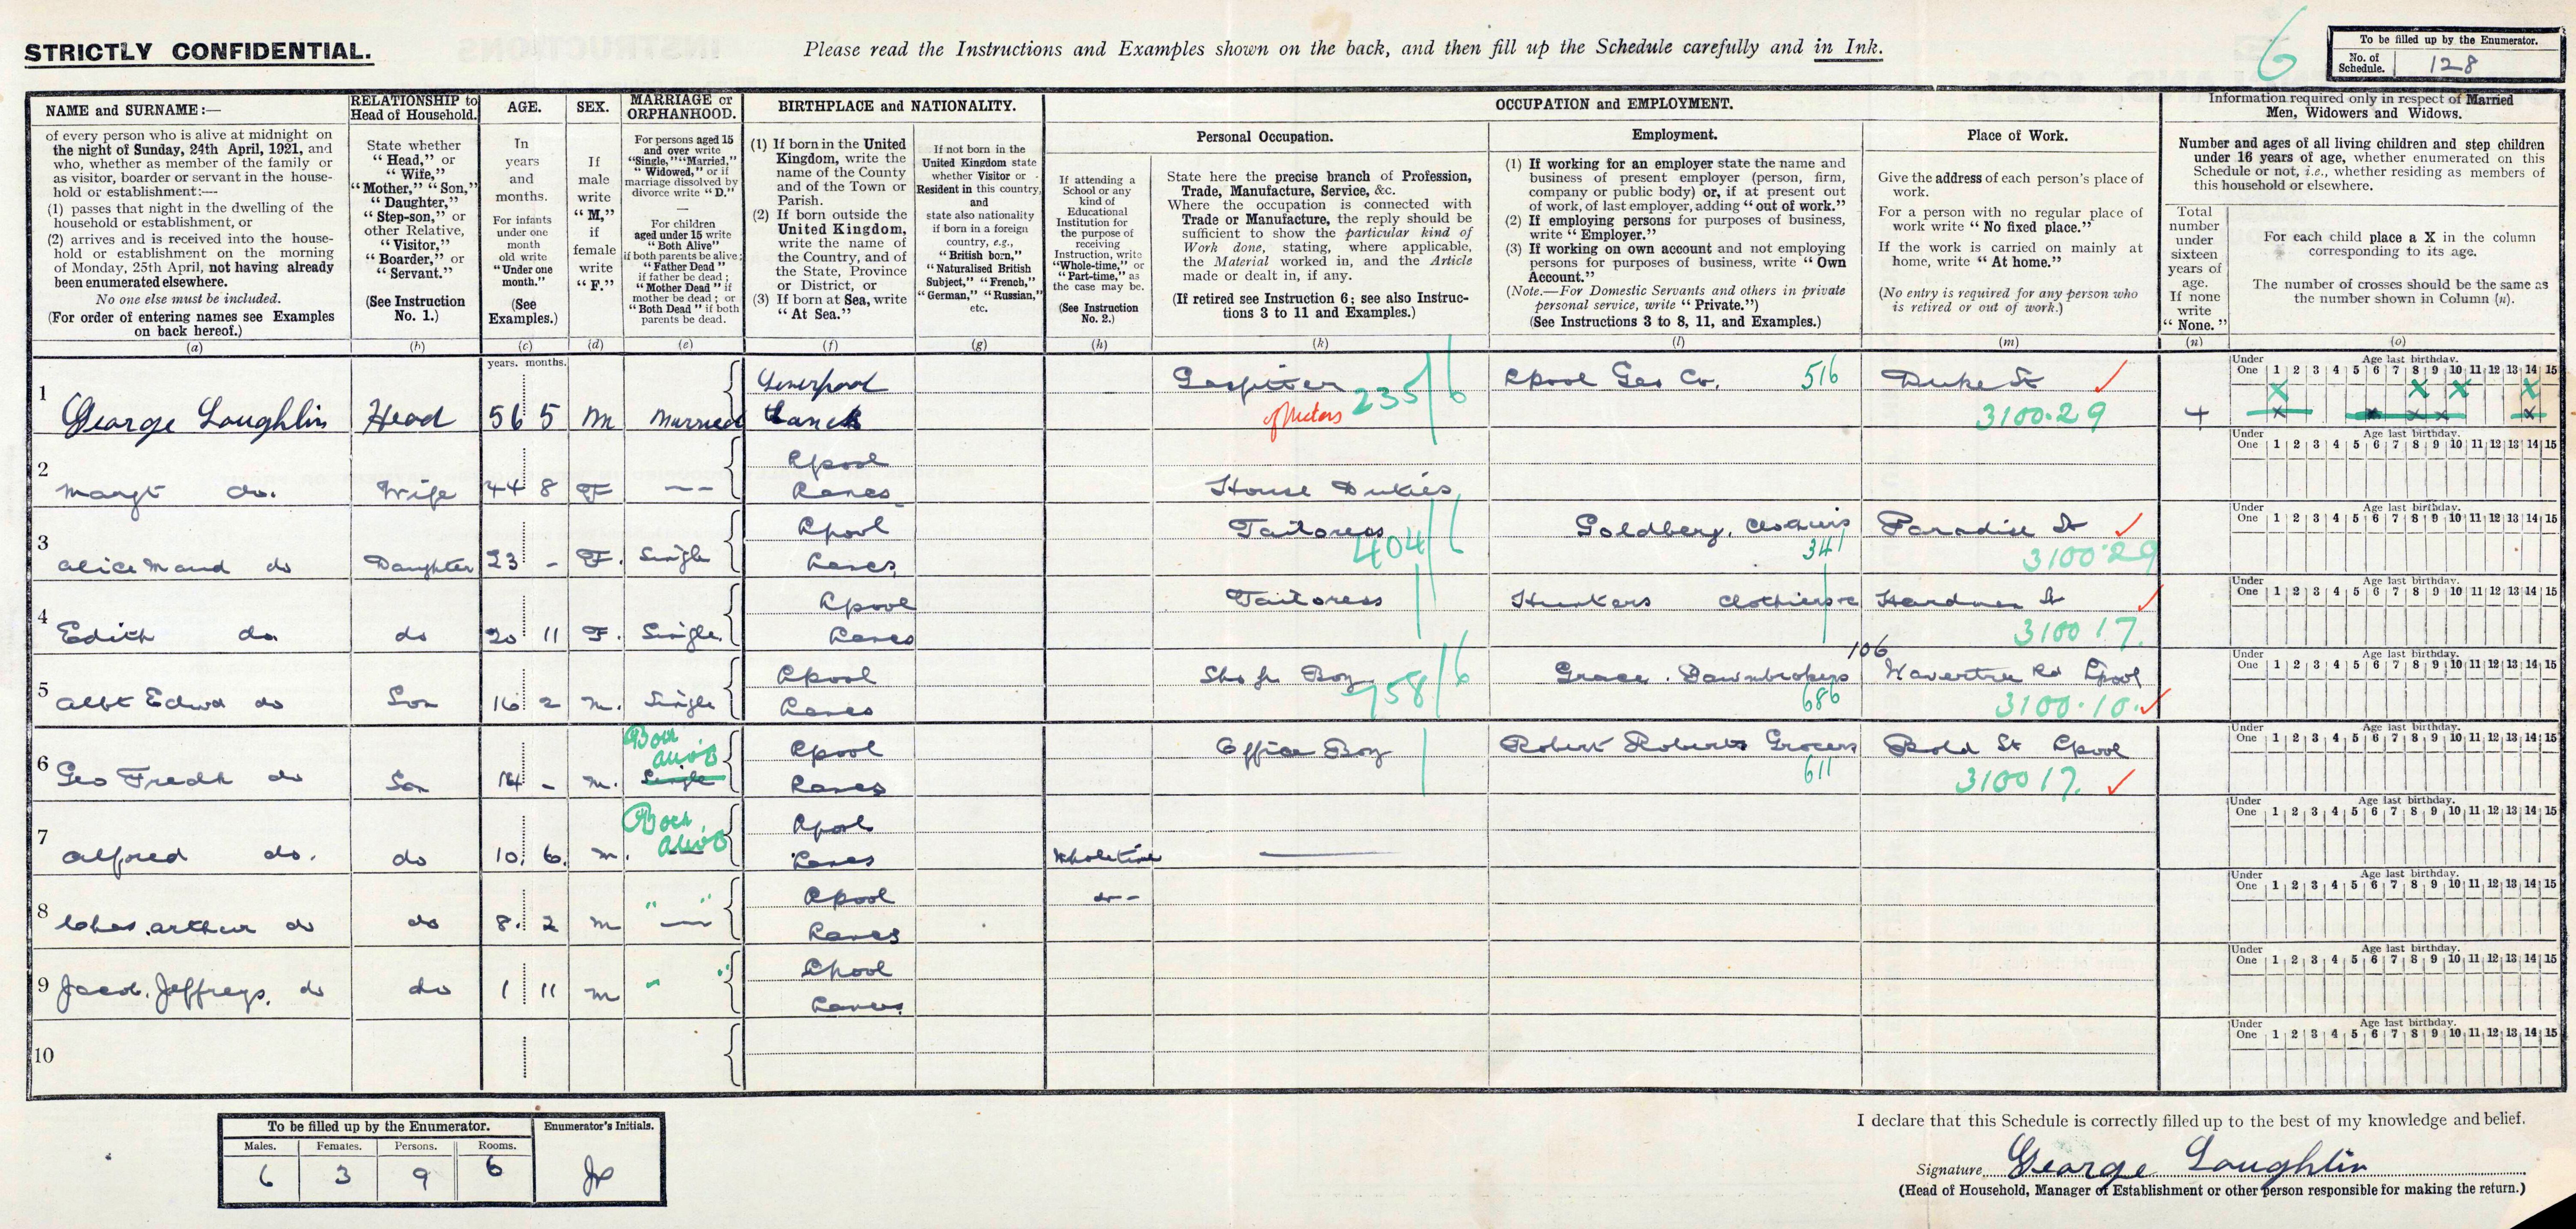 STRICTLY CONFIDENTIAL.
Please read the Instructions and Examples shown on the back, and then fill up the Schedule carefully and in Ink.
6
To be filled up by the Enumerator.
No. of Schedule. 128
NAME and SURNAME:—
of every person who is alive at midnight on
the night of Sunday, 24th April, 1921, and
who, whether as member of the family or
as visitor, boarder or servant in the house-
hold or establishment:—
(1) passes that night in the dwelling of the
household or establishment, or
(2) arrives and is received into the house-
hold or establishment on the morning
of Monday, 25th April, not having already
been enumerated elsewhere.
No one else must be included.
(For order of entering names see Examples
on back hereof.)
(a)
RELATIONSHIP to
Head of Household.
State whether
"Head," or
"Wife,"
"Mother," "Son,"
"Daughter,"
"Step-son," or
other Relative,
"Visitor,"
"Boarder," or
"Servant."
(See Instruction
No. 1.)
(b)
AGE.
In
years
and
months.
For infants
under one
month
old write
"Under one
month."
(See
Examples.)
(c)
SEX.
If
male
write
"M,"
if
female
write
"F."
(d)
MARRIAGE or
ORPHANHOOD.
For persons aged 15
and over write
"Single," "Married,"
"Widowed," or if
marriage dissolved by
divorce write "D."
For children
aged under 15 write
"Both Alive"
if both parents be alive;
"Father Dead"
if father be dead;
"Mother Dead" if
mother be dead; or
"Both Dead" if both
parents be dead.
(e)
BIRTHPLACE and NATIONALITY.
(1) If born in the United
Kingdom, write the
name of the County
and of the Town or
Parish.
(2) If born outside the
United Kingdom,
write the name of
the Country, and of
the State, Province
or District, or
(3) If born at Sea, write
"At Sea."
(f)
If not born in the
United Kingdom state
whether Visitor or
Resident in this country,
and
state also nationality
if born in a foreign
country, e.g.,
"British born,"
"Naturalised British
Subject," "French,"
"German," "Russian,"
etc.
(g)
OCCUPATION and EMPLOYMENT.
Personal Occupation.
If attending a
School or any
kind of
Educational
Institution for
the purpose of
receiving
Instruction, write
"Whole-time," or
"Part-time," as
the case may be.
(See Instruction
No. 2.)
(h)
State here the precise branch of Profession,
Trade, Manufacture, Service, &c.
Where the occupation is connected with
Trade or Manufacture, the reply should be
sufficient to show the particular kind of
Work done, stating, where applicable,
the Material worked in, and the Article
made or dealt in, if any.
(If retired see Instruction 6; see also Instruc-
tions 3 to 11 and Examples.)
(k)
Employment.
(1) If working for an employer state the name and
business of present employer (person, firm,
company or public body) or, if at present out
of work, of last employer, adding "out of work."
(2) If employing persons for purposes of business,
write "Employer."
(3) If working on own account and not employing
persons for purposes of business, write "Own
Account."
(Note.—For Domestic Servants and others in private
personal service, write "Private.")
(See Instructions 3 to 8, 11, and Examples.)
(l)
Place of Work.
Give the address of each person's place of
work.
For a person with no regular place of
work write "No fixed place."
If the work is carried on mainly at
home, write "At home."
(No entry is required for any person who
is retired or out of work.)
(m)
Information required only in respect of Married
Men, Widowers and Widows.
Number and ages of all living children and step children
under 16 years of age, whether enumerated on this
Schedule or not, i.e., whether residing as members of
this household or elsewhere.
Total
number
under
sixteen
years of
age.
If none
write
"None."
(n)
For each child place a X in the column
corresponding to its age.
The number of crosses should be the same as
the number shown in Column (n).
(o)
years. months.
Under One Age last birthday. 1 2 3 4 5 6 7 8 9 10 11 12 13 14 15
1 George Loughlin Head 56 5 M Married Liverpool Lanck Gasfitter of Meters 235/6 Lpool Gas Co. 516 Duke St 3100.29 4
2 Margt do. Wife 44 8 F — Lpool Lancs House Duties
3 Alice Maud do Daughter 23 - F. Single Lpool Lancs Tailoress 404/6 Goldberg, 341 Paradise St 3100.29
4 Edith do do 20 11 F. Single Lpool Lancs Tailoress Clothiers Hardman St 310017.
5 Albt Edwd do Son 16 2 M. Single Lpool Lancs Shop Boy 958/6 Grace. Pawnbrokers 106 686 Wavertree Rd Lpool 3100.10.
6 Geo Fredk do Son 14 - M. Single Both alive Lpool Lancs Office Boy Robert Roberts Grocers 611 Bold St Lpool 310017.
7 Alfred do. do 10. 6. M. Both Alive Lpool Lancs Wholetime
8 Chas. Arthur do do 8. 2 M " " Lpool Lancs do -
9 Jacob. Jeffreys. do do 1 11 M " " Lpool Lancs
10
To be filled up by the Enumerator.
Males. Females. Persons. Rooms.
6 3 9 6
Enumerator's Initials.
I declare that this Schedule is correctly filled up to the best of my knowledge and belief.
Signature George Loughlin
(Head of Household, Manager of Establishment or other person responsible for making the return.)